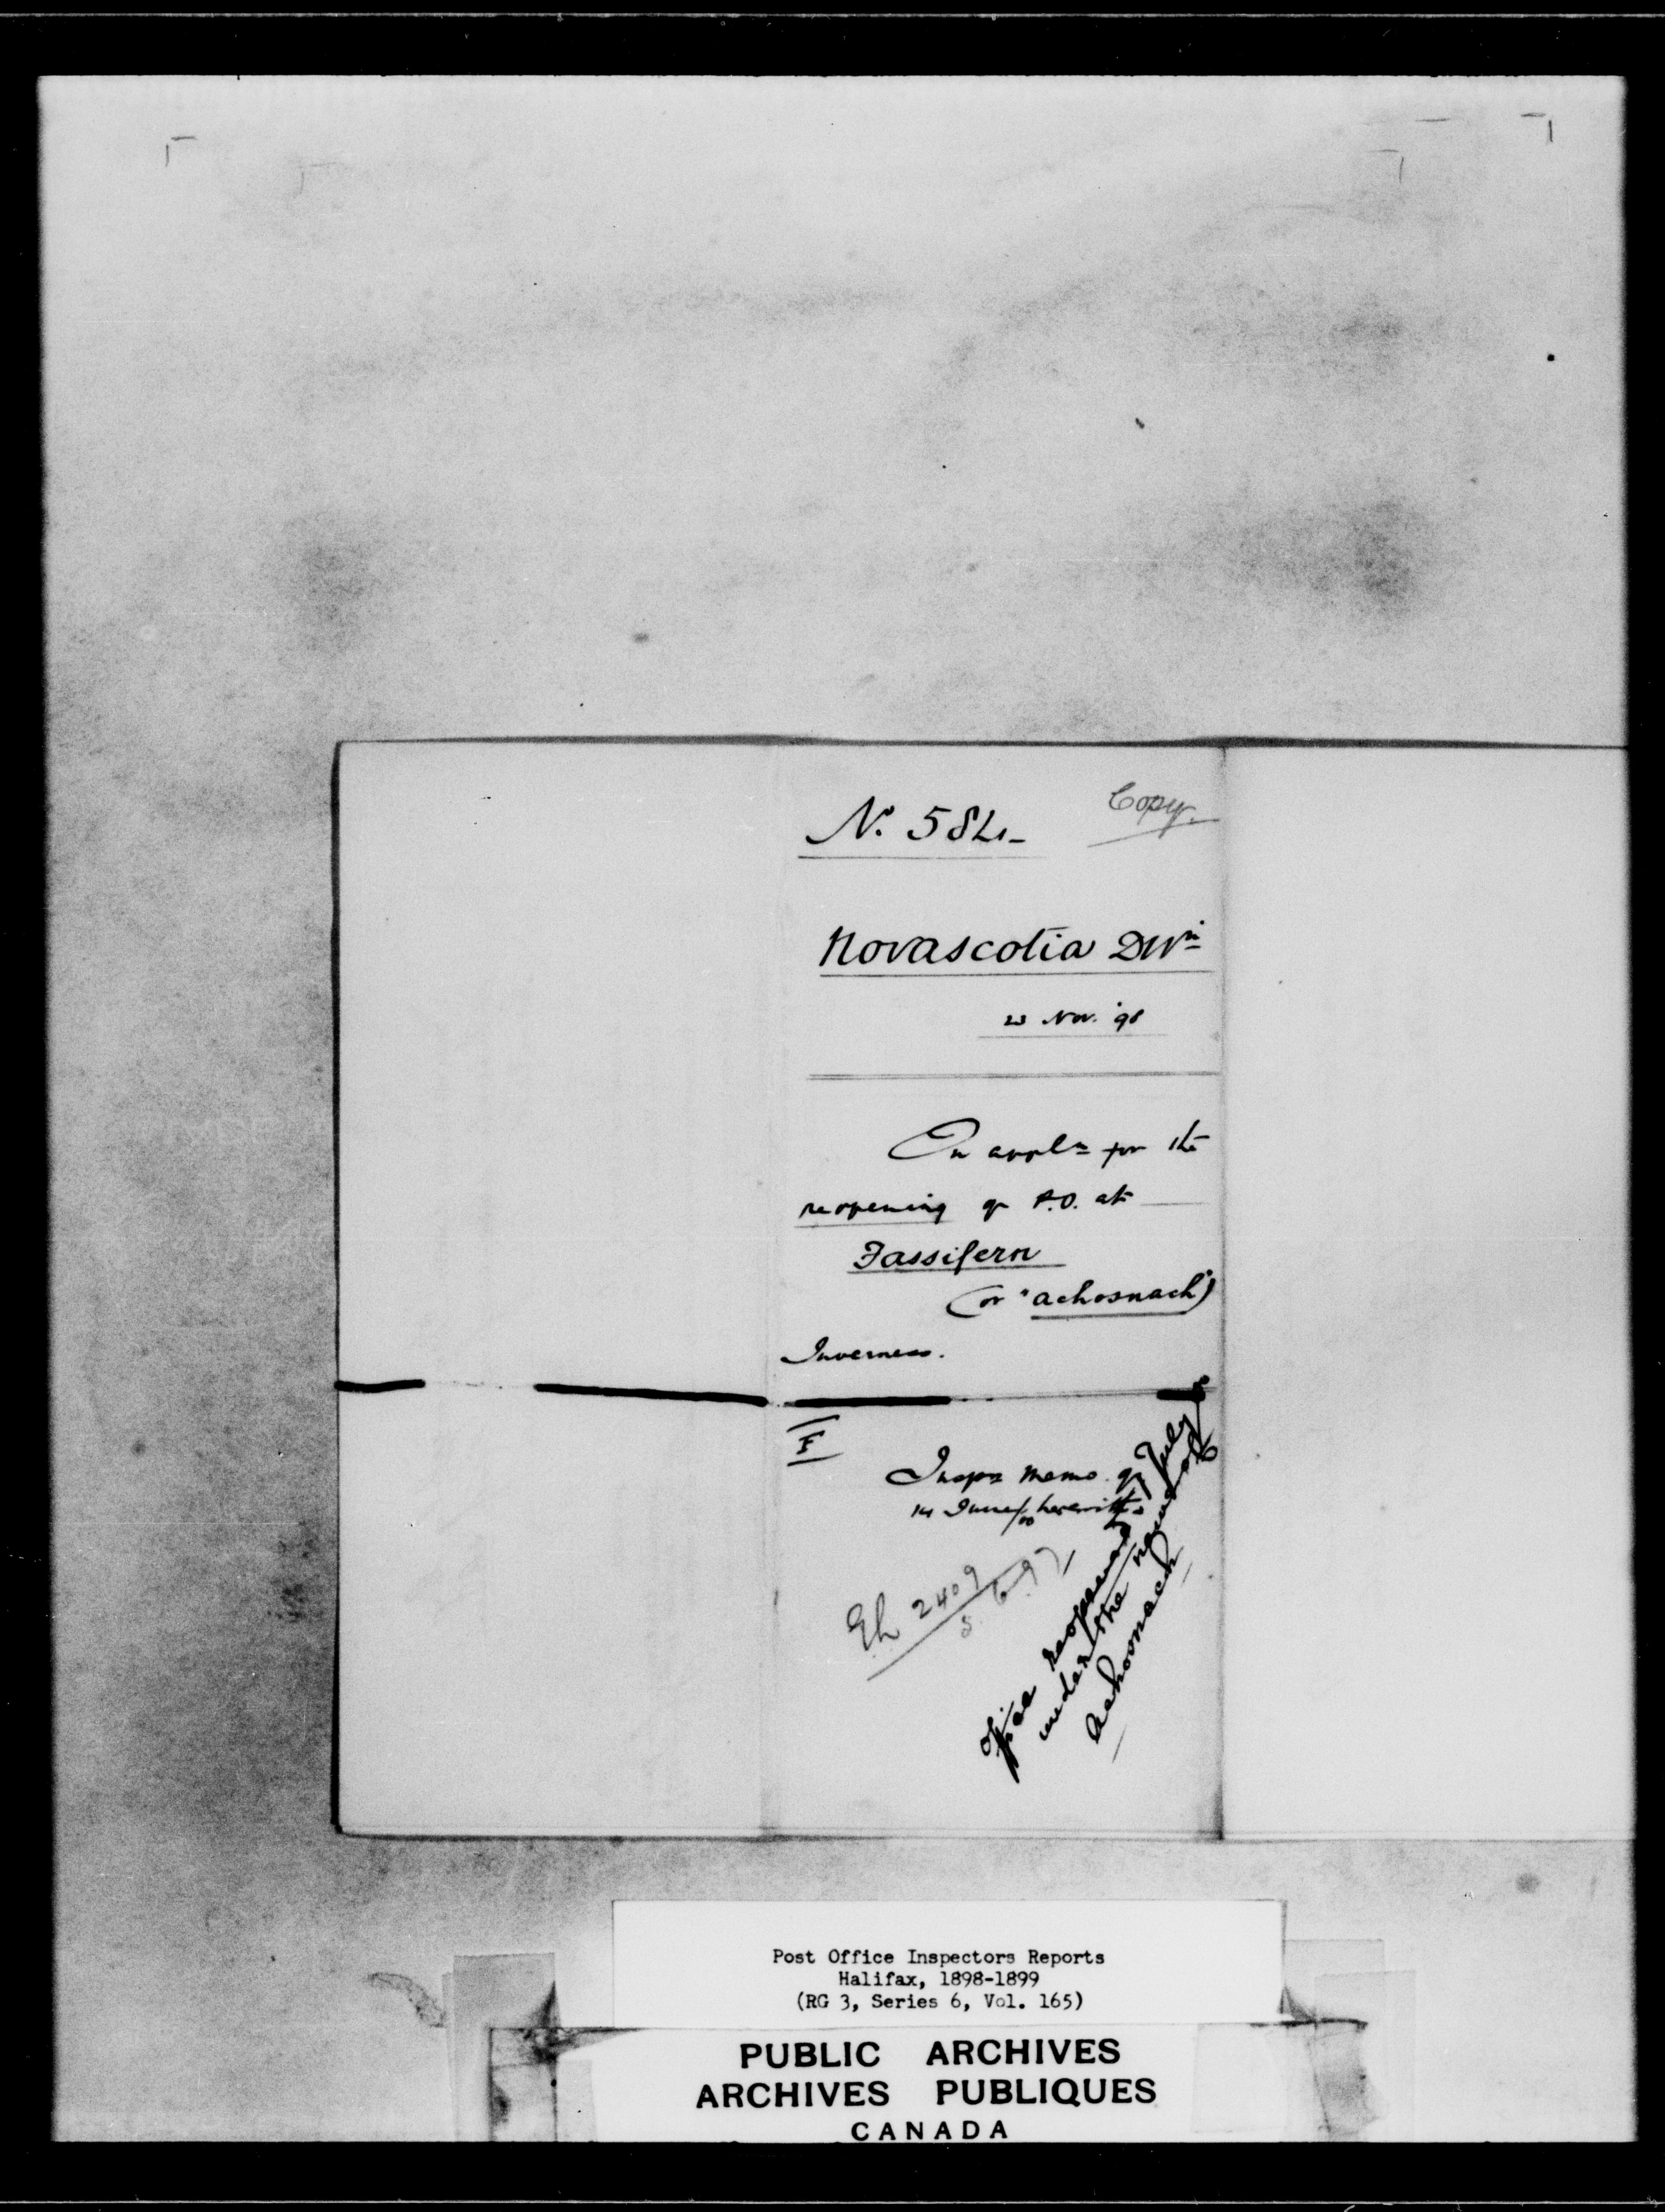 Copy.
No. 584-
Novascotia Divn
23 Nov. '98
On appln for the
reopening of P.O. at
Fassifern
(or "achosnach")
Inverness.
F
Inspr memo. of
14 June/00 herewith
Eh 2409
5.6.97
Office reopened July
under the name of
Achosnach
Post Office Inspectors Reports
Halifax, 1898-1899
(RG 3, Series 6, Vol. 165)
PUBLIC ARCHIVES
ARCHIVES PUBLIQUES
CANADA